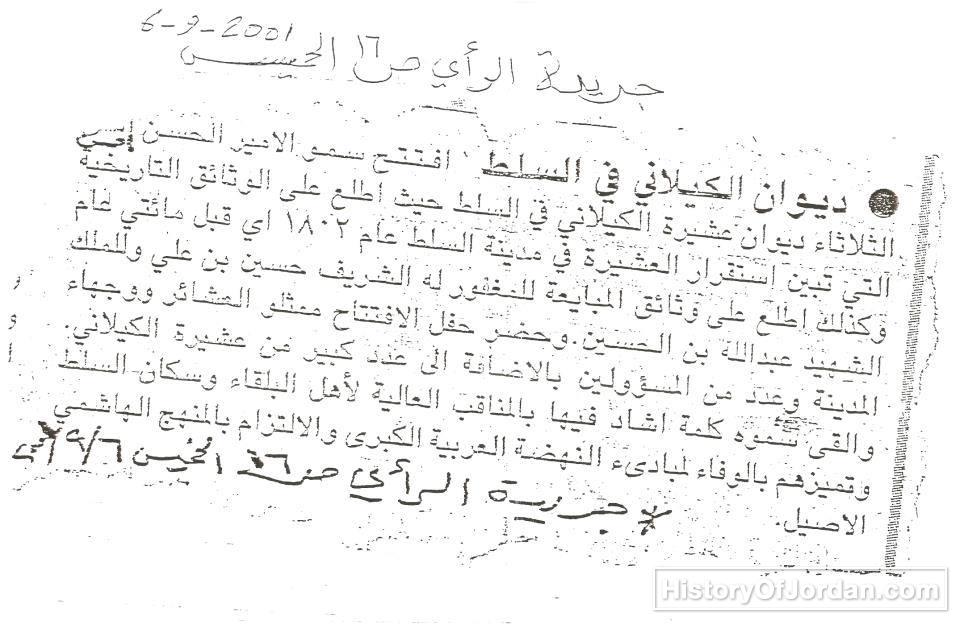 6-9-2001
جريدة الرأي ص ١٦ الخميس
● ديوان الكيلاني في السلط افتتح سمو الامير الحسن
الثلاثاء ديوان عشيرة الكيلاني في السلط حيث اطلع على الوثائق التاريخية
التي تبين إستقرار العشيرة في مدينة السلط عام ١٨٠٢ اي قبل مائتي عام
وكذلك إطلع على وثائق المبايعة للمغفور له الشريف حسين بن علي والملك
الشهيد عبدالله بن الحسين. وحضر حفل الافتتاح ممثلو العشائر ووجهاء
المدينة وعدد من المسؤولين بالاضافة الى عدد كبير من عشيرة الكيلاني.
والقى سموه كلمة اشاد فيها بالمناقب العالية لأهل البلقاء وسكان السلط
وتميزهم بالوفاء لمبادىء النهضة العربية الكبرى والالتزام بالمنهج الهاشمي
الاصيل.
جريدة الرأي ص ١٦ الخميس ٩/٦
HistoryOfJordan.com